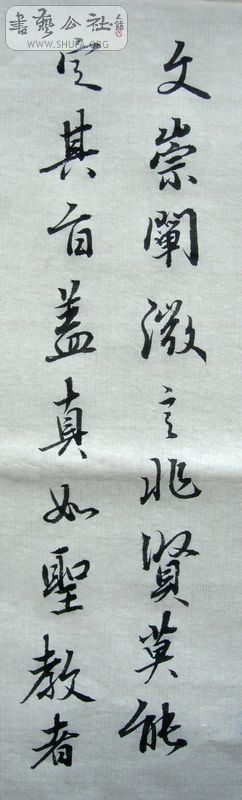 書藝公社
WWW.SHUFA.ORG
文崇闡微言非賢莫能
定其旨蓋真如聖教者